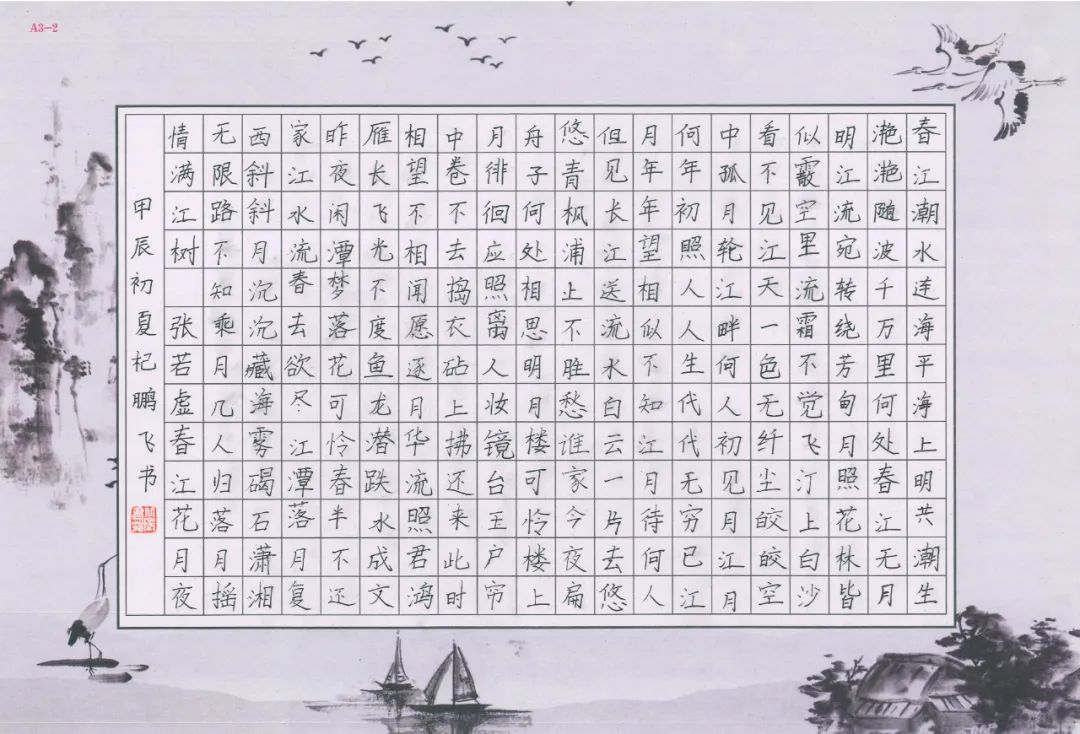 A3-2
春江潮水连海平海上明共潮生
滟滟随波千万里何处春江无月
明江流宛转绕芳甸月照花林皆
似霰空里流霜不觉飞汀上白沙
看不见江天一色无纤尘皎皎空
中孤月轮江畔何人初见月江月
何年初照人人生代代无穷已江
月年年望相似不知江月待何人
但见长江送流水白云一片去悠
悠青枫浦上不胜愁谁家今夜扁
舟子何处相思明月楼可怜楼上
月徘徊应照离人妆镜台玉户帘
中卷不去捣衣砧上拂还来此时
相望不相闻愿逐月华流照君鸿
雁长飞光不度鱼龙潜跃水成文
昨夜闲潭梦落花可怜春半不还
家江水流春去欲尽江潭落月复
西斜斜月沉沉藏海雾碣石潇湘
无限路不知乘月几人归落月摇
情满江树 张若虚春江花月夜
甲辰初夏杞鹏飞书